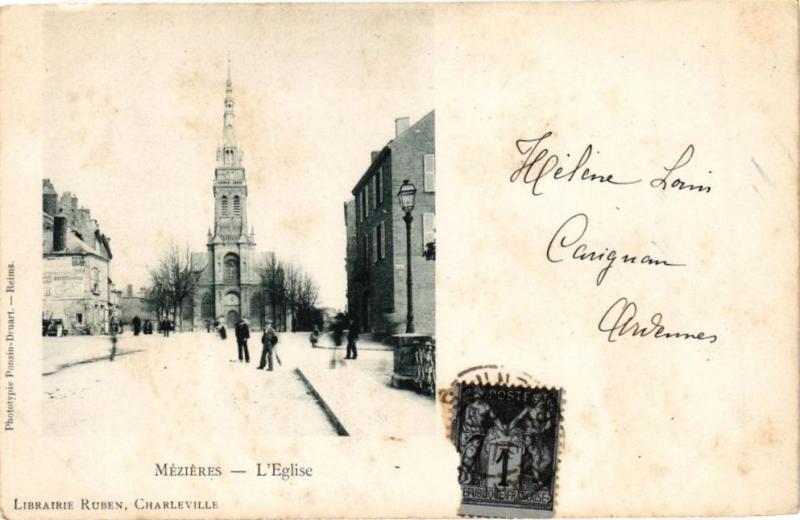 Phototypie Ponsin-Druart. — Reims.
MÉZIÈRES — L'Eglise
LIBRAIRIE RUBEN, CHARLEVILLE
Hélène
Carignan
Ardennes
POSTE
1
REPUBLIQUE FRANCAISE